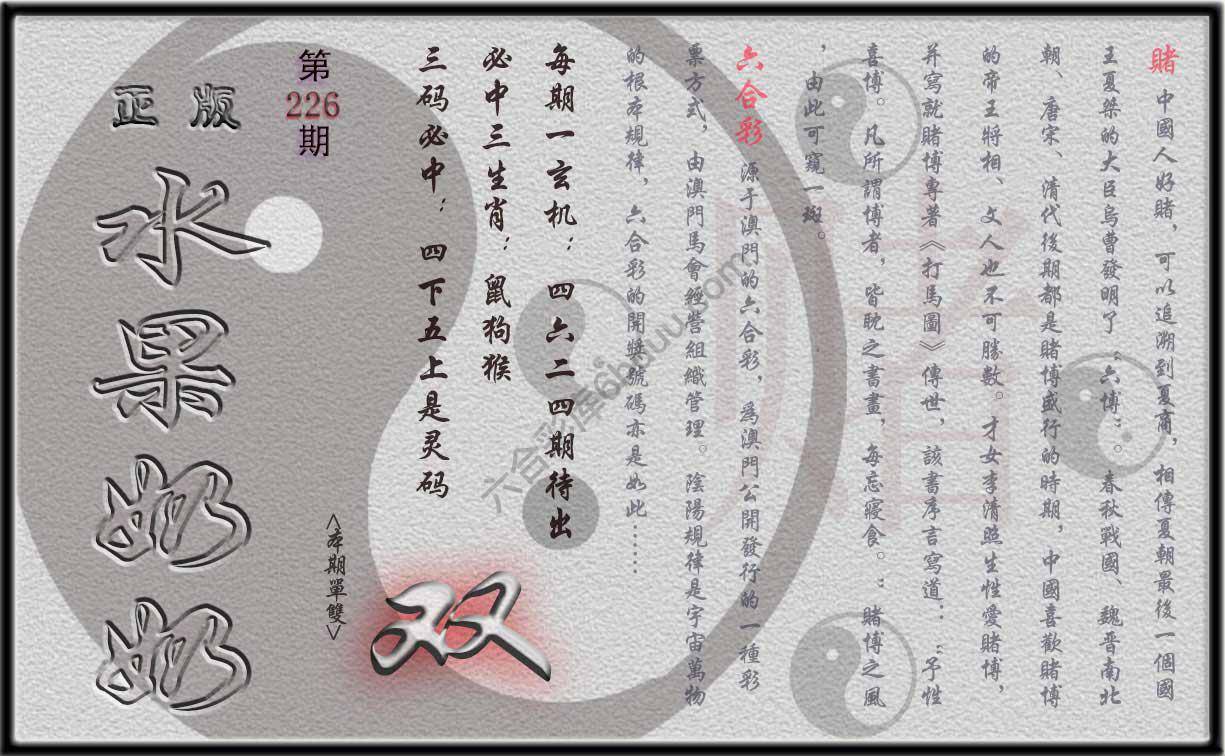 賭 中國人好賭，可以追溯到夏商，相傳夏朝最後一個國
王夏桀的大臣烏曹發明了“六博”。春秋戰國、魏晋南北
朝、唐宋、清代後期都是賭博盛行的時期，中國喜歡賭博
的帝王將相、文人也不可勝數。才女李清照生性愛賭博，
并寫就賭博專著《打馬圖》傳世，該書序言寫道：“予性
喜博。凡所謂博者，皆眈之書畫，每忘寢食。”賭博之風
，由此可窺一斑。
六合彩 源于澳門的六合彩，爲澳門公開發行的一種彩
票方式，由澳門馬會經營組織管理。陰陽規律是宇宙萬物
的根本規律，六合彩的開獎號碼亦是如此……
每期一玄机：四六二四期待出
必中三生肖：鼠狗猴
三码必中：四下五上是灵码
<本期單雙>
双
第
226
期
正版
水果奶奶
賭
六合彩库6hduu.com